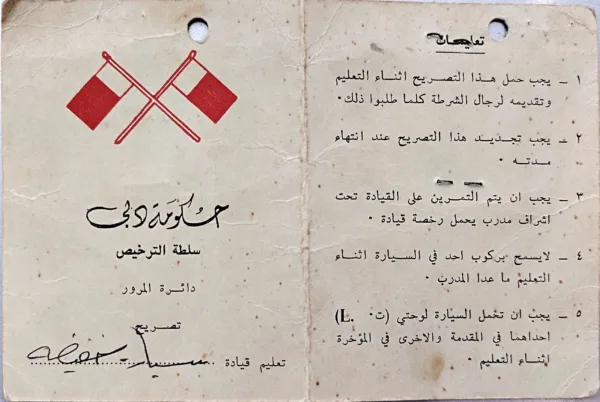 حكومة دبي
سلطة الترخيص
دائرة المرور
تصريح
تعليم قيادة سيارة خفيفة
تعليمات
١ ــ يجب حمل هذا التصريح اثناء التعليم
وتقديمه لرجال الشرطة كلما طلبوا ذلك٠
٢ ــ يجب تجديد هذا التصريح عند انتهاء
مدته ٠
٣ ــ يجب ان يتم التمرين على القيادة تحت
اشراف مدرب يحمل رخصة قيادة ٠
٤ ــ لايسمح بركوب احد في السيارة اثناء
التعليم ما عدا المدرب ٠
٥ ــ يجب ان تحمل السيارة لوحتي (ت٠ L.)
احداهما في المقدمة والاخرى في المؤخرة
اثناء التعليم ٠